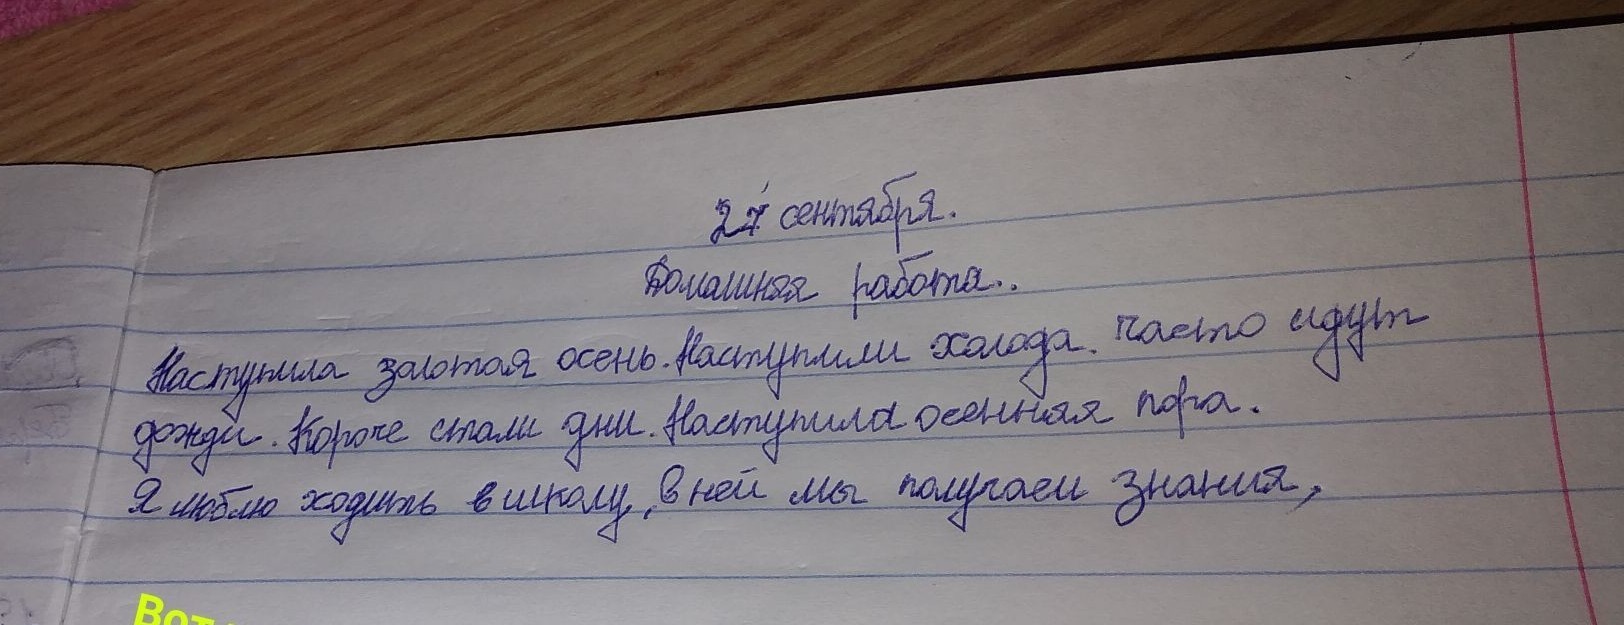 27 сентября.
Домашняя работа..
Наступила золотая осень. Наступили холода. Часто идут
дожди. Короче стали дни. Наступила осенняя пора.
Я люблю ходить в школу, в ней мы получаем знания,
Вот